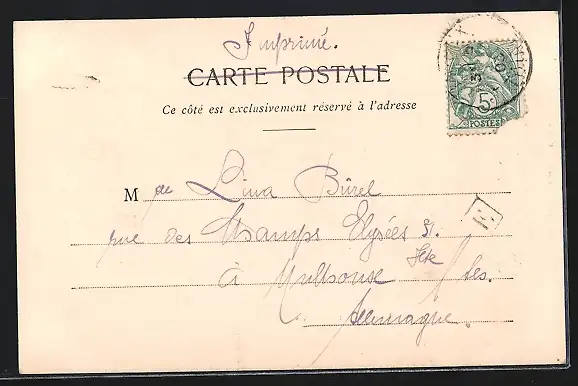 Imprimé.
CARTE POSTALE
Ce côté est exclusivement réservé à l'adresse
5c
POSTES
Mlle Lina Bürel
rue des Champs Elysées 31.
à Mulhouse
Allemagne.